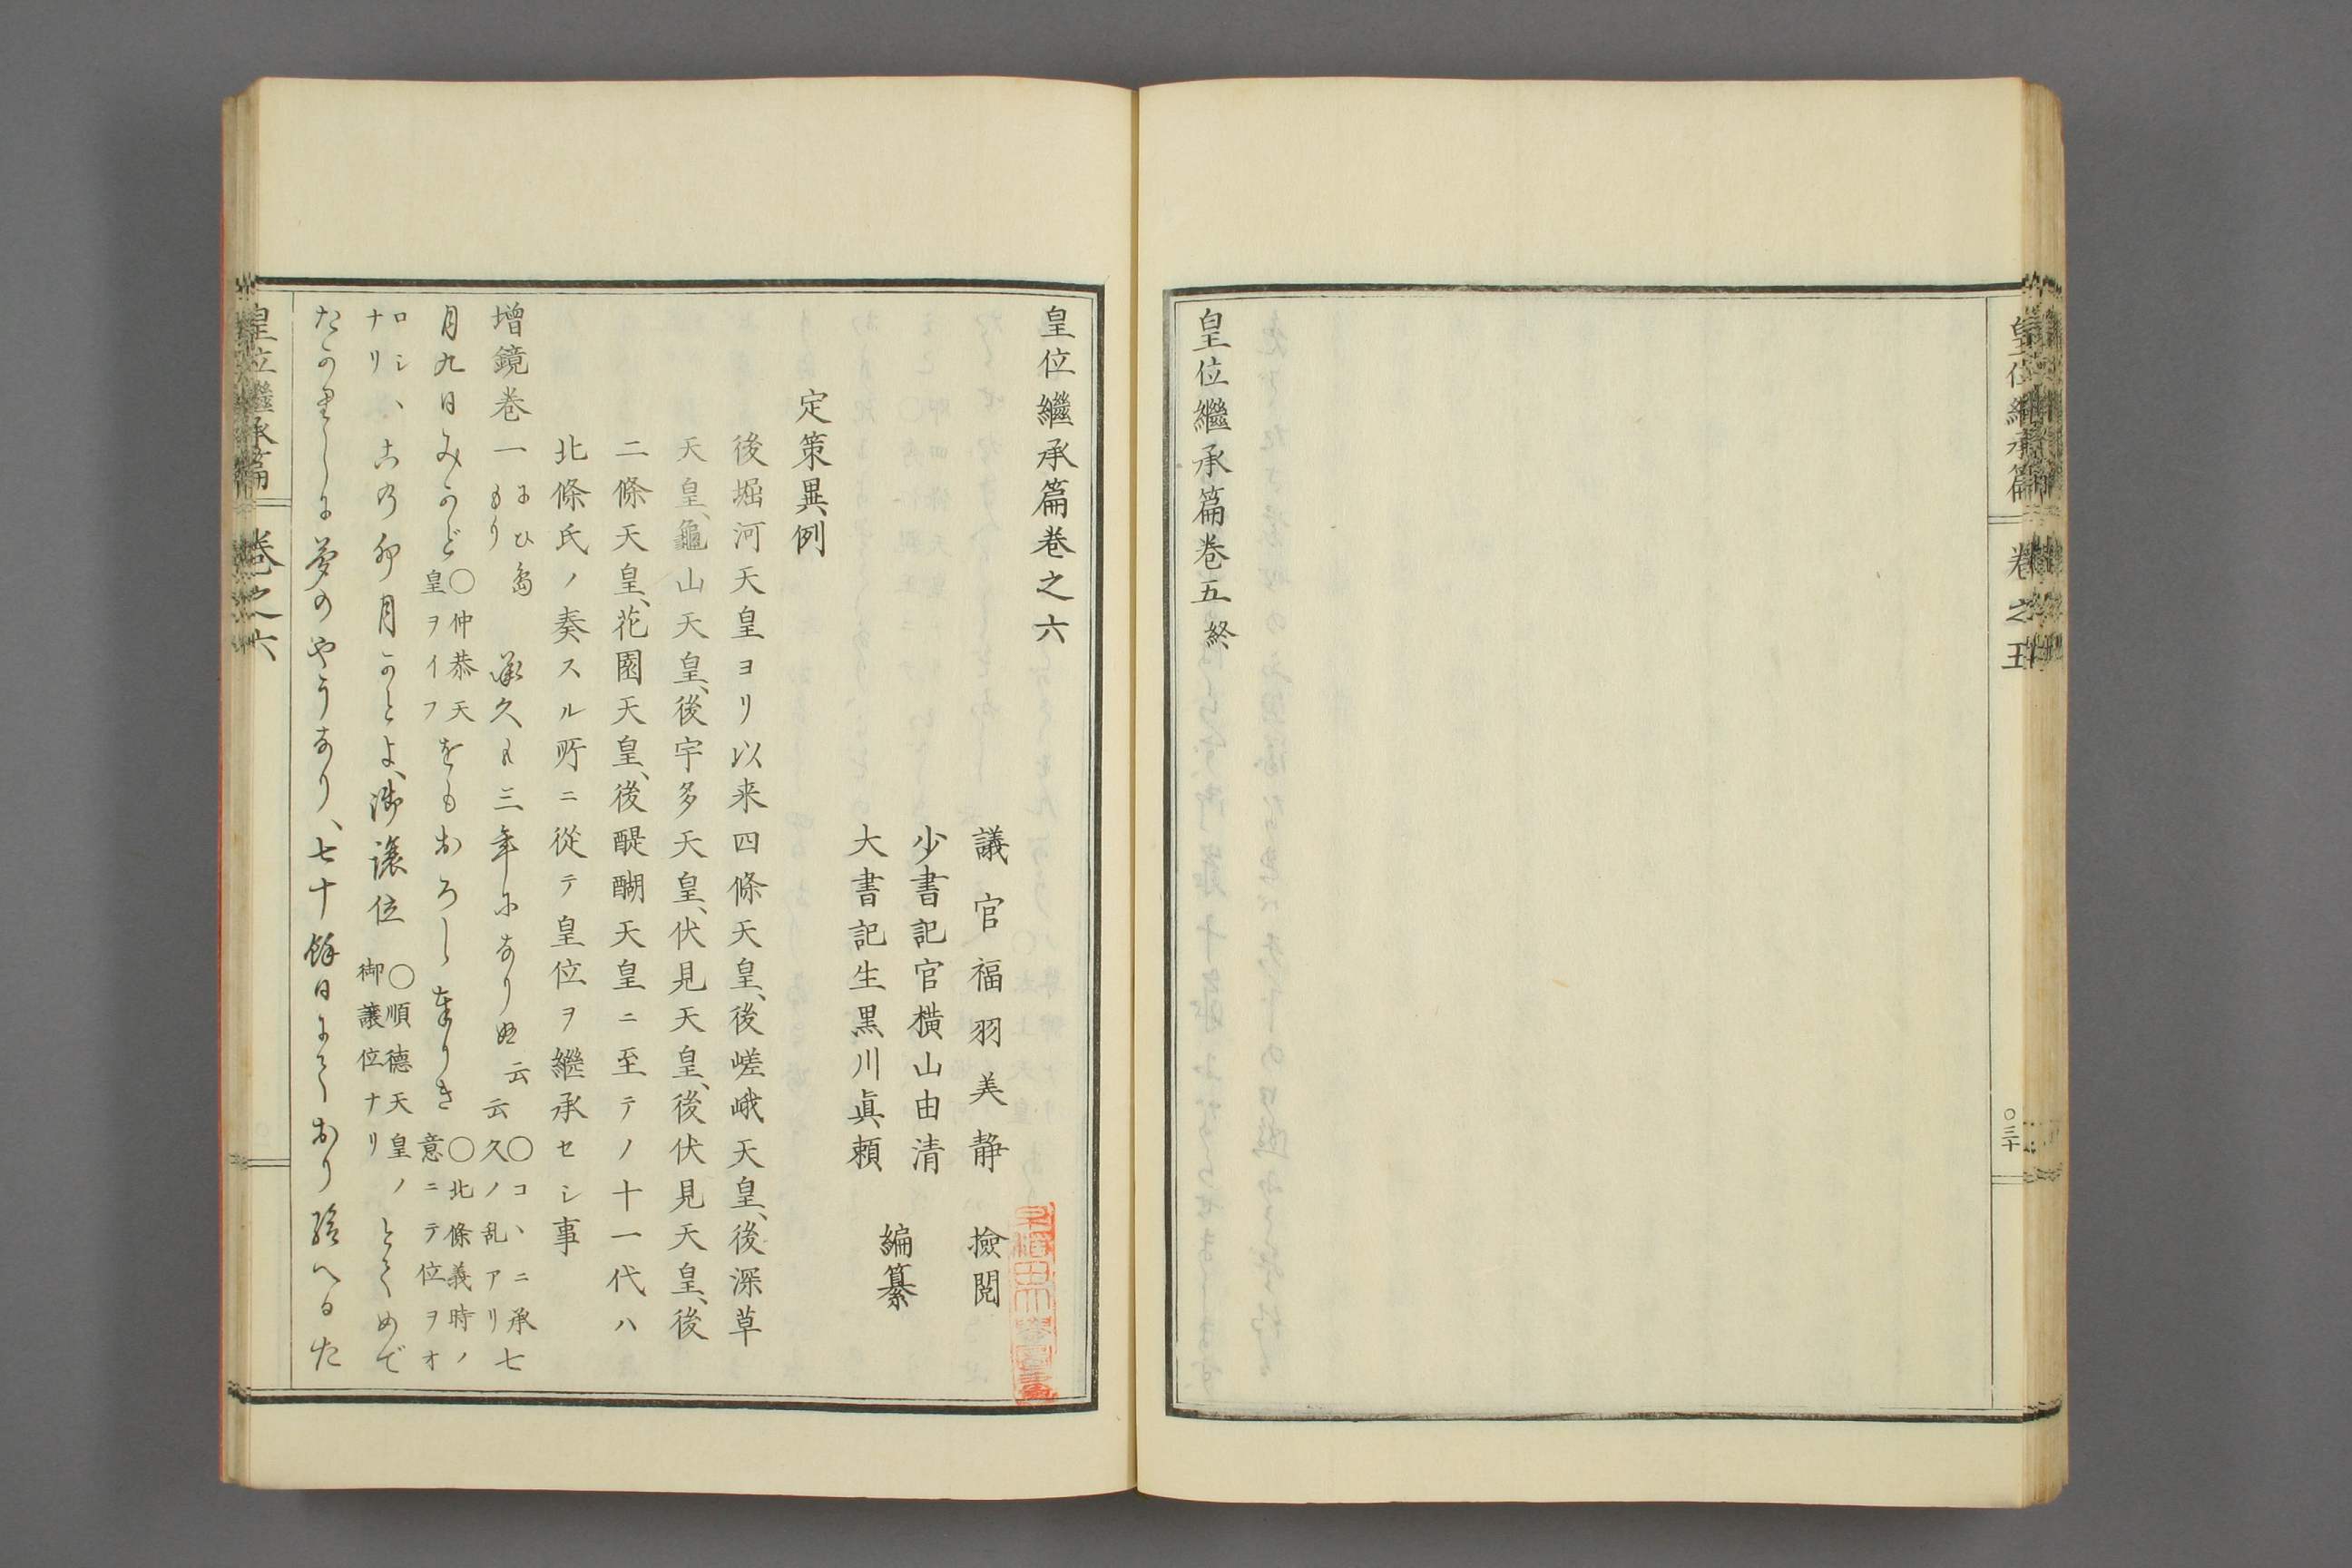 皇位繼承篇 卷之五 〇三十
皇位繼承篇卷五終
皇位繼承篇卷之六
議官福羽美静 撿閲
少書記官橫山由清
大書記生黒川眞頼
編纂
定策異例
後堀河天皇ヨリ以来四條天皇、後嵯峨天皇、後深草
天皇、龜山天皇、後宇多天皇、伏見天皇、後伏見天皇、後
二條天皇、花園天皇、後醍醐天皇ニ至テノ十一代ハ
北條氏ノ奏スル所ニ從テ皇位ヲ繼承セシ事
增鏡卷一 にひ島もり 承久も三年になりぬ云云 〇コヽニ承久ノ乱アリ 七
月九日みかど 〇仲恭天皇ヲイフ をもおろし奉りき 〇北條義時ノ意ニテ位ヲオ
ロシヽナリ この卯月かとよ、御譲位 〇順徳天皇ノ御譲位ナリ とてめで
たかりしに夢のやうなり、七十餘日にており給へるた
皇位繼承篇 卷之六